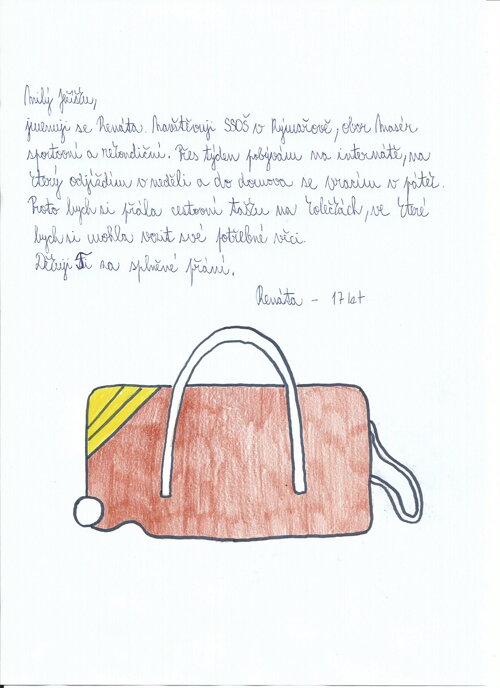 Milý Ježíšku,
jmenuji se Renáta. Navštěvuji SSOŠ v Rýmařově, obor Masér
sportovní a rekondiční. Přes týden pobývám na internátě, na
který odjíždím v neděli a do domova se vracím v pátek.
Proto bych si přála cestovní tašku na kolečkách, ve které
bych si mohla vozit své potřebné věci.
Děkuji Ti za splněné přání.
Renáta - 17 let